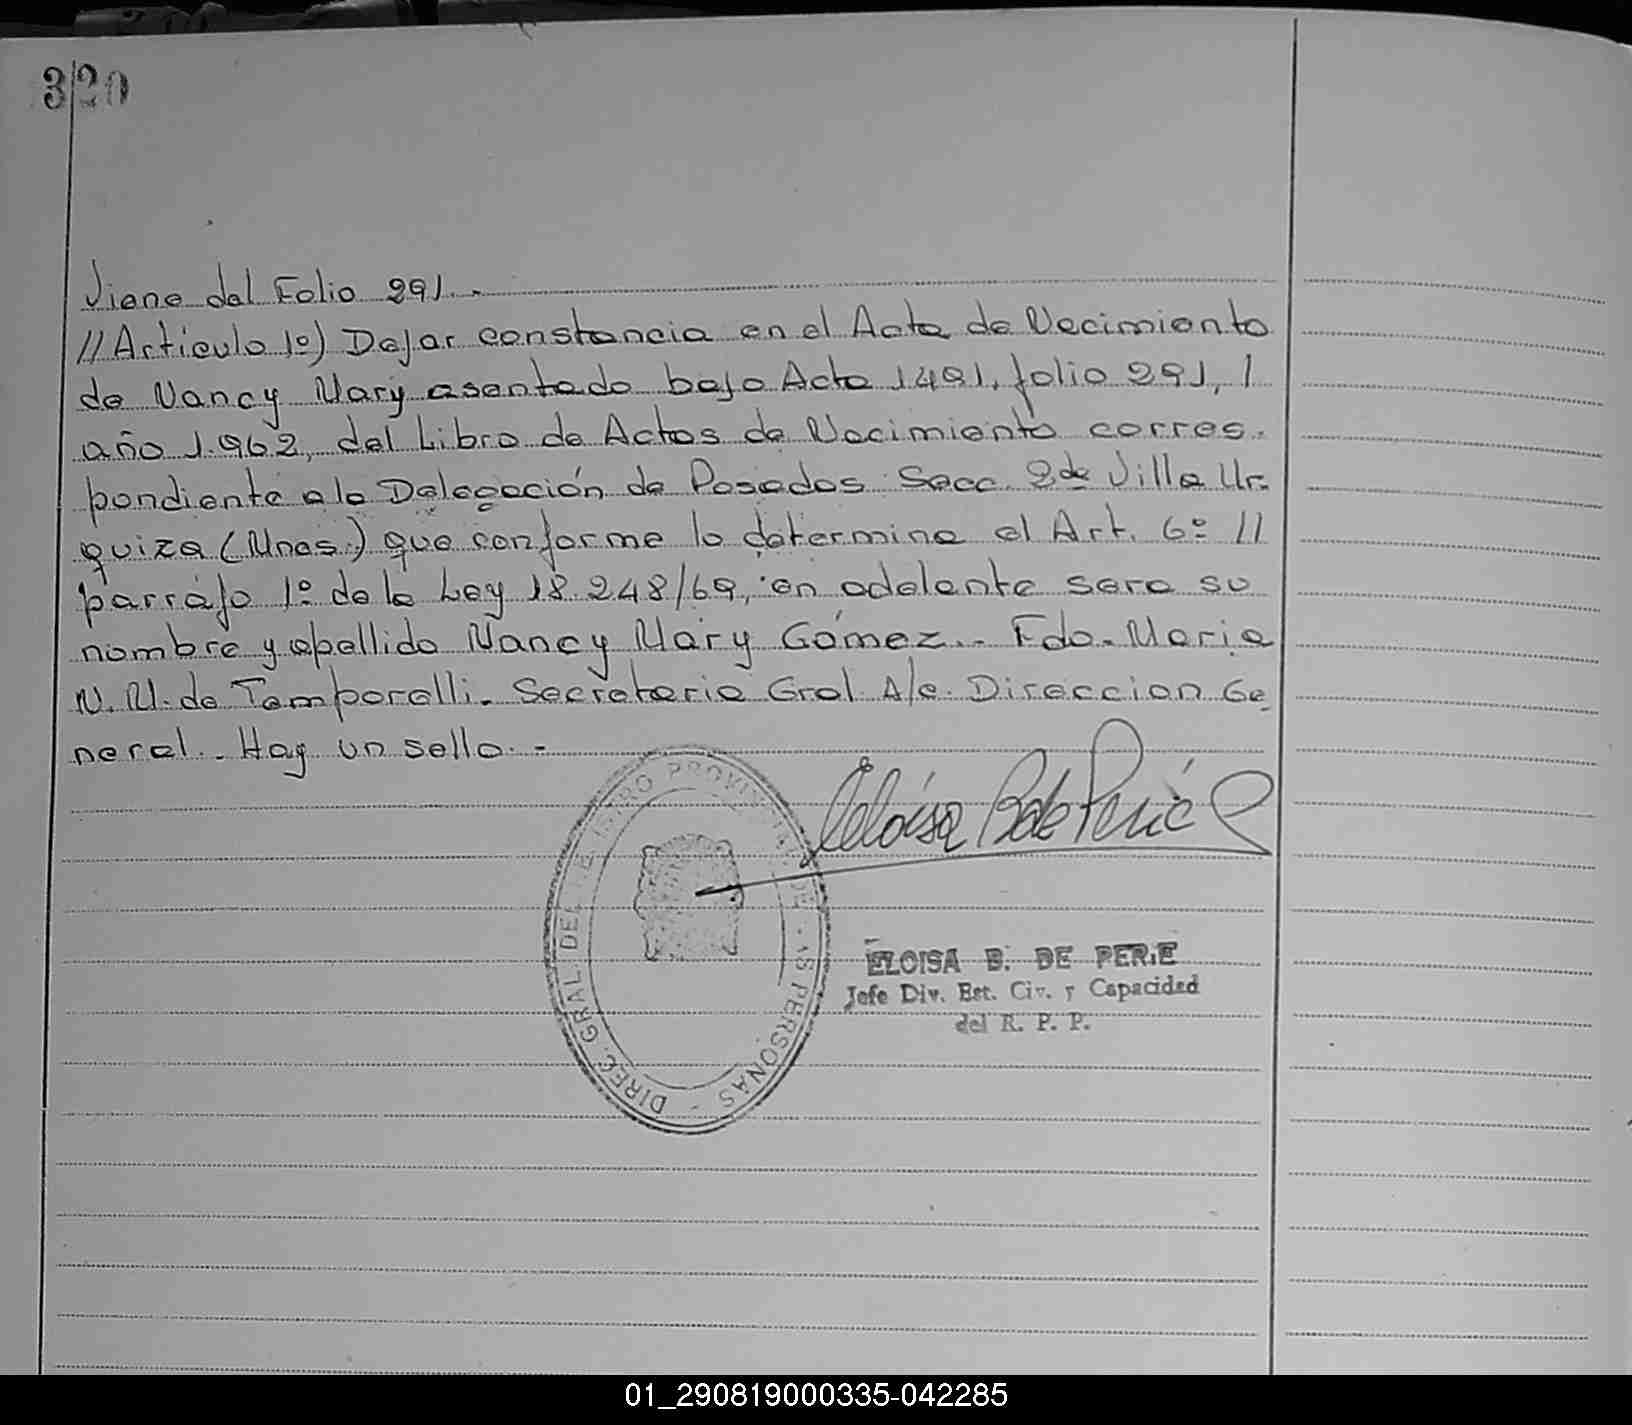 320
Viene del Folio 291.-
//Artículo 1º) Dejar constancia en el Acta de Nacimiento
de Nancy Mary asentada bajo Acta 1491, folio 291, /
año 1.962, del Libro de Actas de Nacimiento corres-
pondiente a la Delegación de Posadas Secc. 2da Villa Ur-
quiza (Mnes.) que conforme lo determina el Art. 6º //
parráfo 1º de la Ley 18.248/69, en adelante sera su
nombre y apellido Nancy Mary Gómez.- Fdo. Maria
N. M. de Temporelli. Secretaria Gral A/c. Direccion Ge-
neral.- Hay un sello.-
Eloísa B de Perié
DIREC. GRAL. DEL REGISTRO PROVINCIAL DE LAS PERSONAS -
ELOISA B. DE PERIE
Jefe Div. Est. Civ. y Capacidad
del R. P. P.
01_290819000335-042285